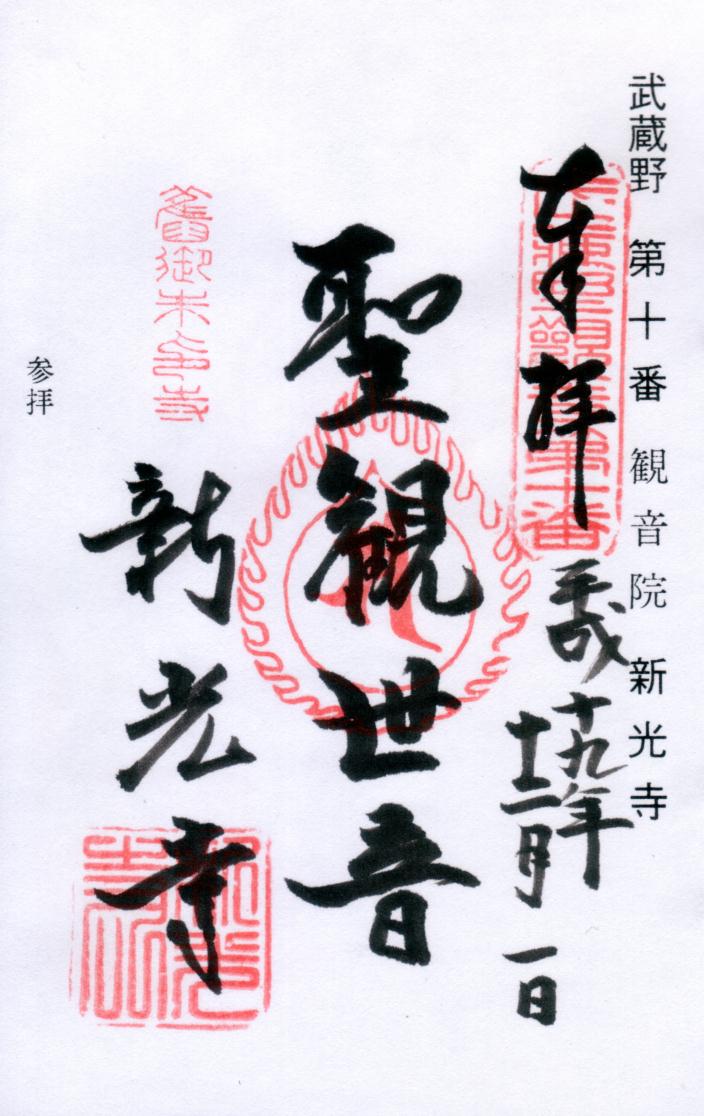 武蔵野 第十番 観音院 新光寺
奉拝
平成十九年
十二月一日
武蔵野観音第十番
聖観世音
舊御朱印寺
新光寺
参拝